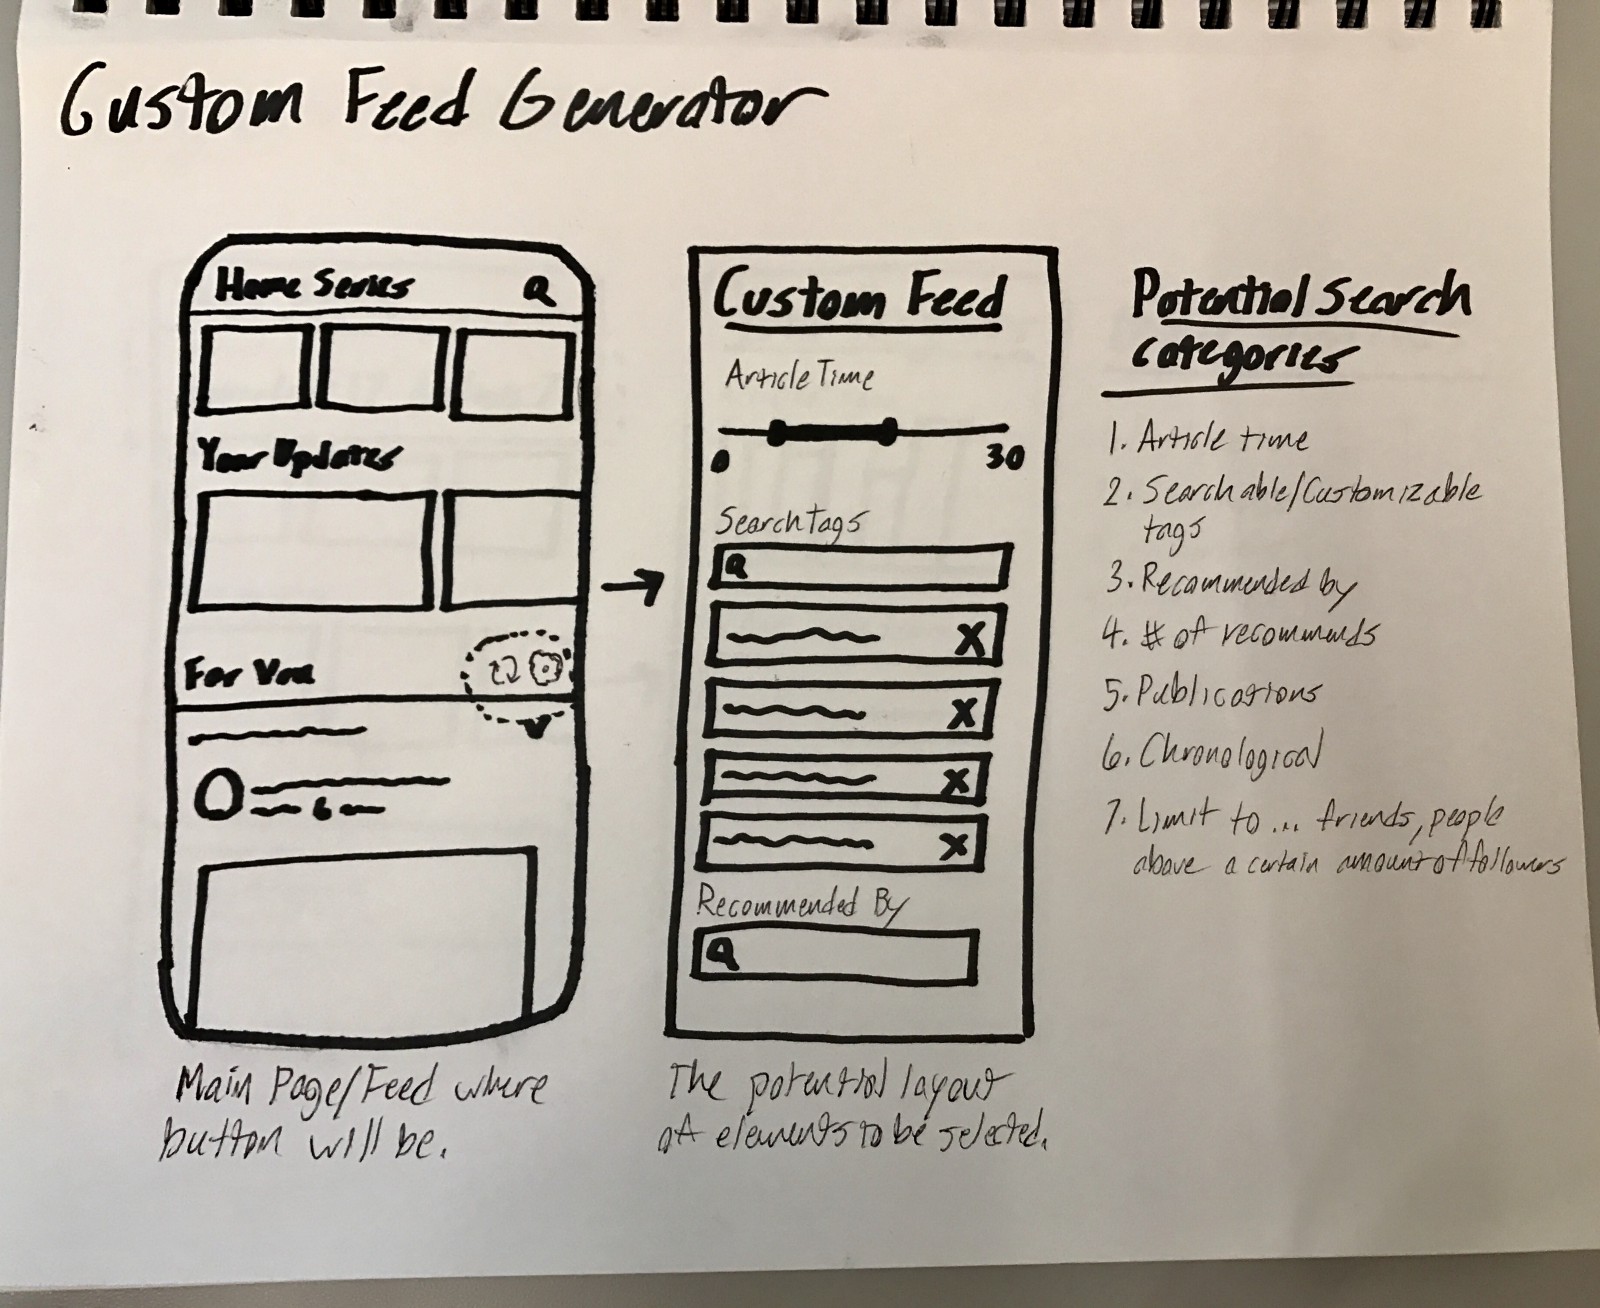 Custom Feed Generator
Home Series
Your Updates
For You
Main Page/Feed where
button will be.
Custom Feed
Article Time
0 30
Search Tags
X
X
X
X
Recommended By
The potential layout
of elements to be selected.
Potential Search
Categories
1. Article time
2. Searchable/Customizable
tags
3. Recommended by
4. # of recommends
5. Publications
6. Chronological
7. Limit to ... friends, people
above a certain amount of followers